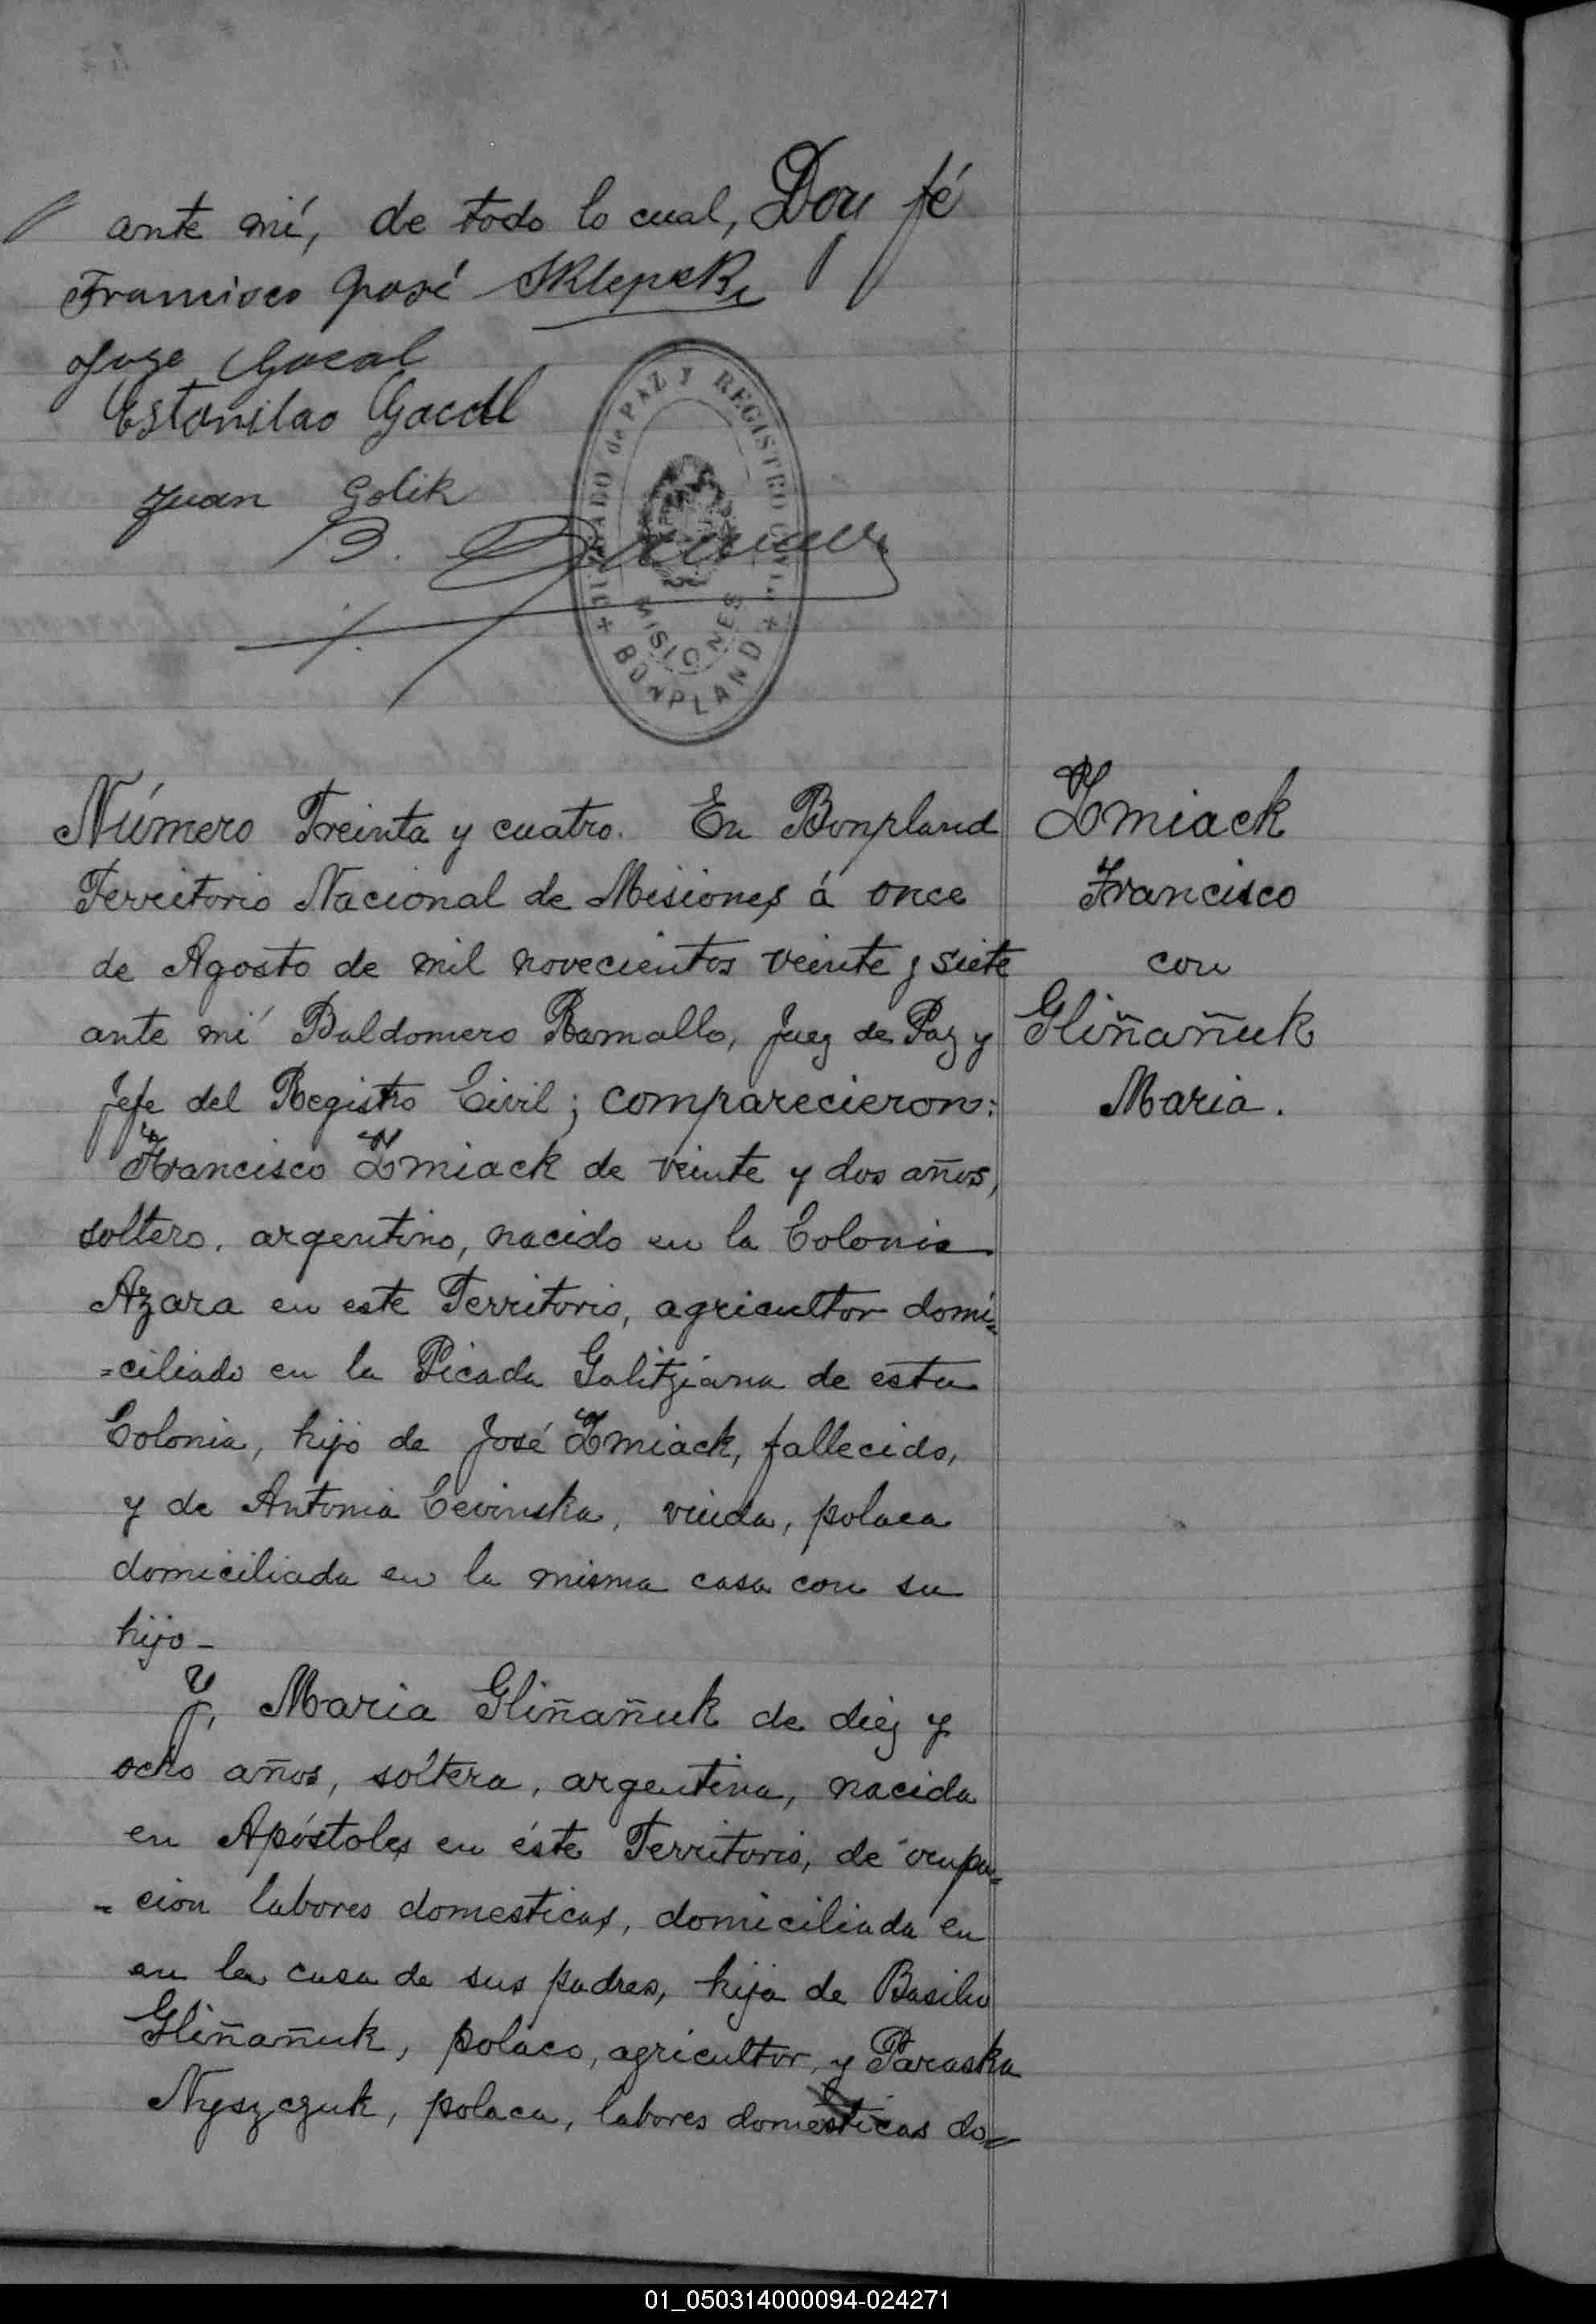 ante mí, de todo lo cual, Doy fé
Francisco José Sklepek
Jose Gacal
Estanilao Gacal
Juan Golik
B.
JUZGADO de PAZ y REGISTRO CIVIL
MISIONES
+ BONPLAND +
Número Treinta y cuatro. En Bonpland
Territorio Nacional de Misiones á once
de Agosto de mil novecientos veinte y siete
ante mí Baldomero Ramallo, Juez de Paz y
Jefe del Registro Civil; comparecieron:
Francisco Zmiack de veinte y dos años,
soltero, argentino, nacido en la Colonia
Azara en este Territorio, agricultor domi=
=ciliado en la Picada Galitziana de esta
Colonia, hijo de José Zmiack, fallecido,
y de Antonia Cevinska, viuda, polaca
domiciliada en la misma casa con su
hijo -
Y, Maria Gliñañuk de diez y
ocho años, soltera, argentina, nacida
en Apóstoles en éste Territorio, de ocupa=
=cion labores domesticas, domiciliada en
en la casa de sus padres, hija de Basilio
Gliñañuk, polaco, agricultor, y Paraska
Nyszczuk, polaca, labores domesticas do=
Zmiack
Francisco
con
Gliñañuk
Maria.
01_050314000094-024271